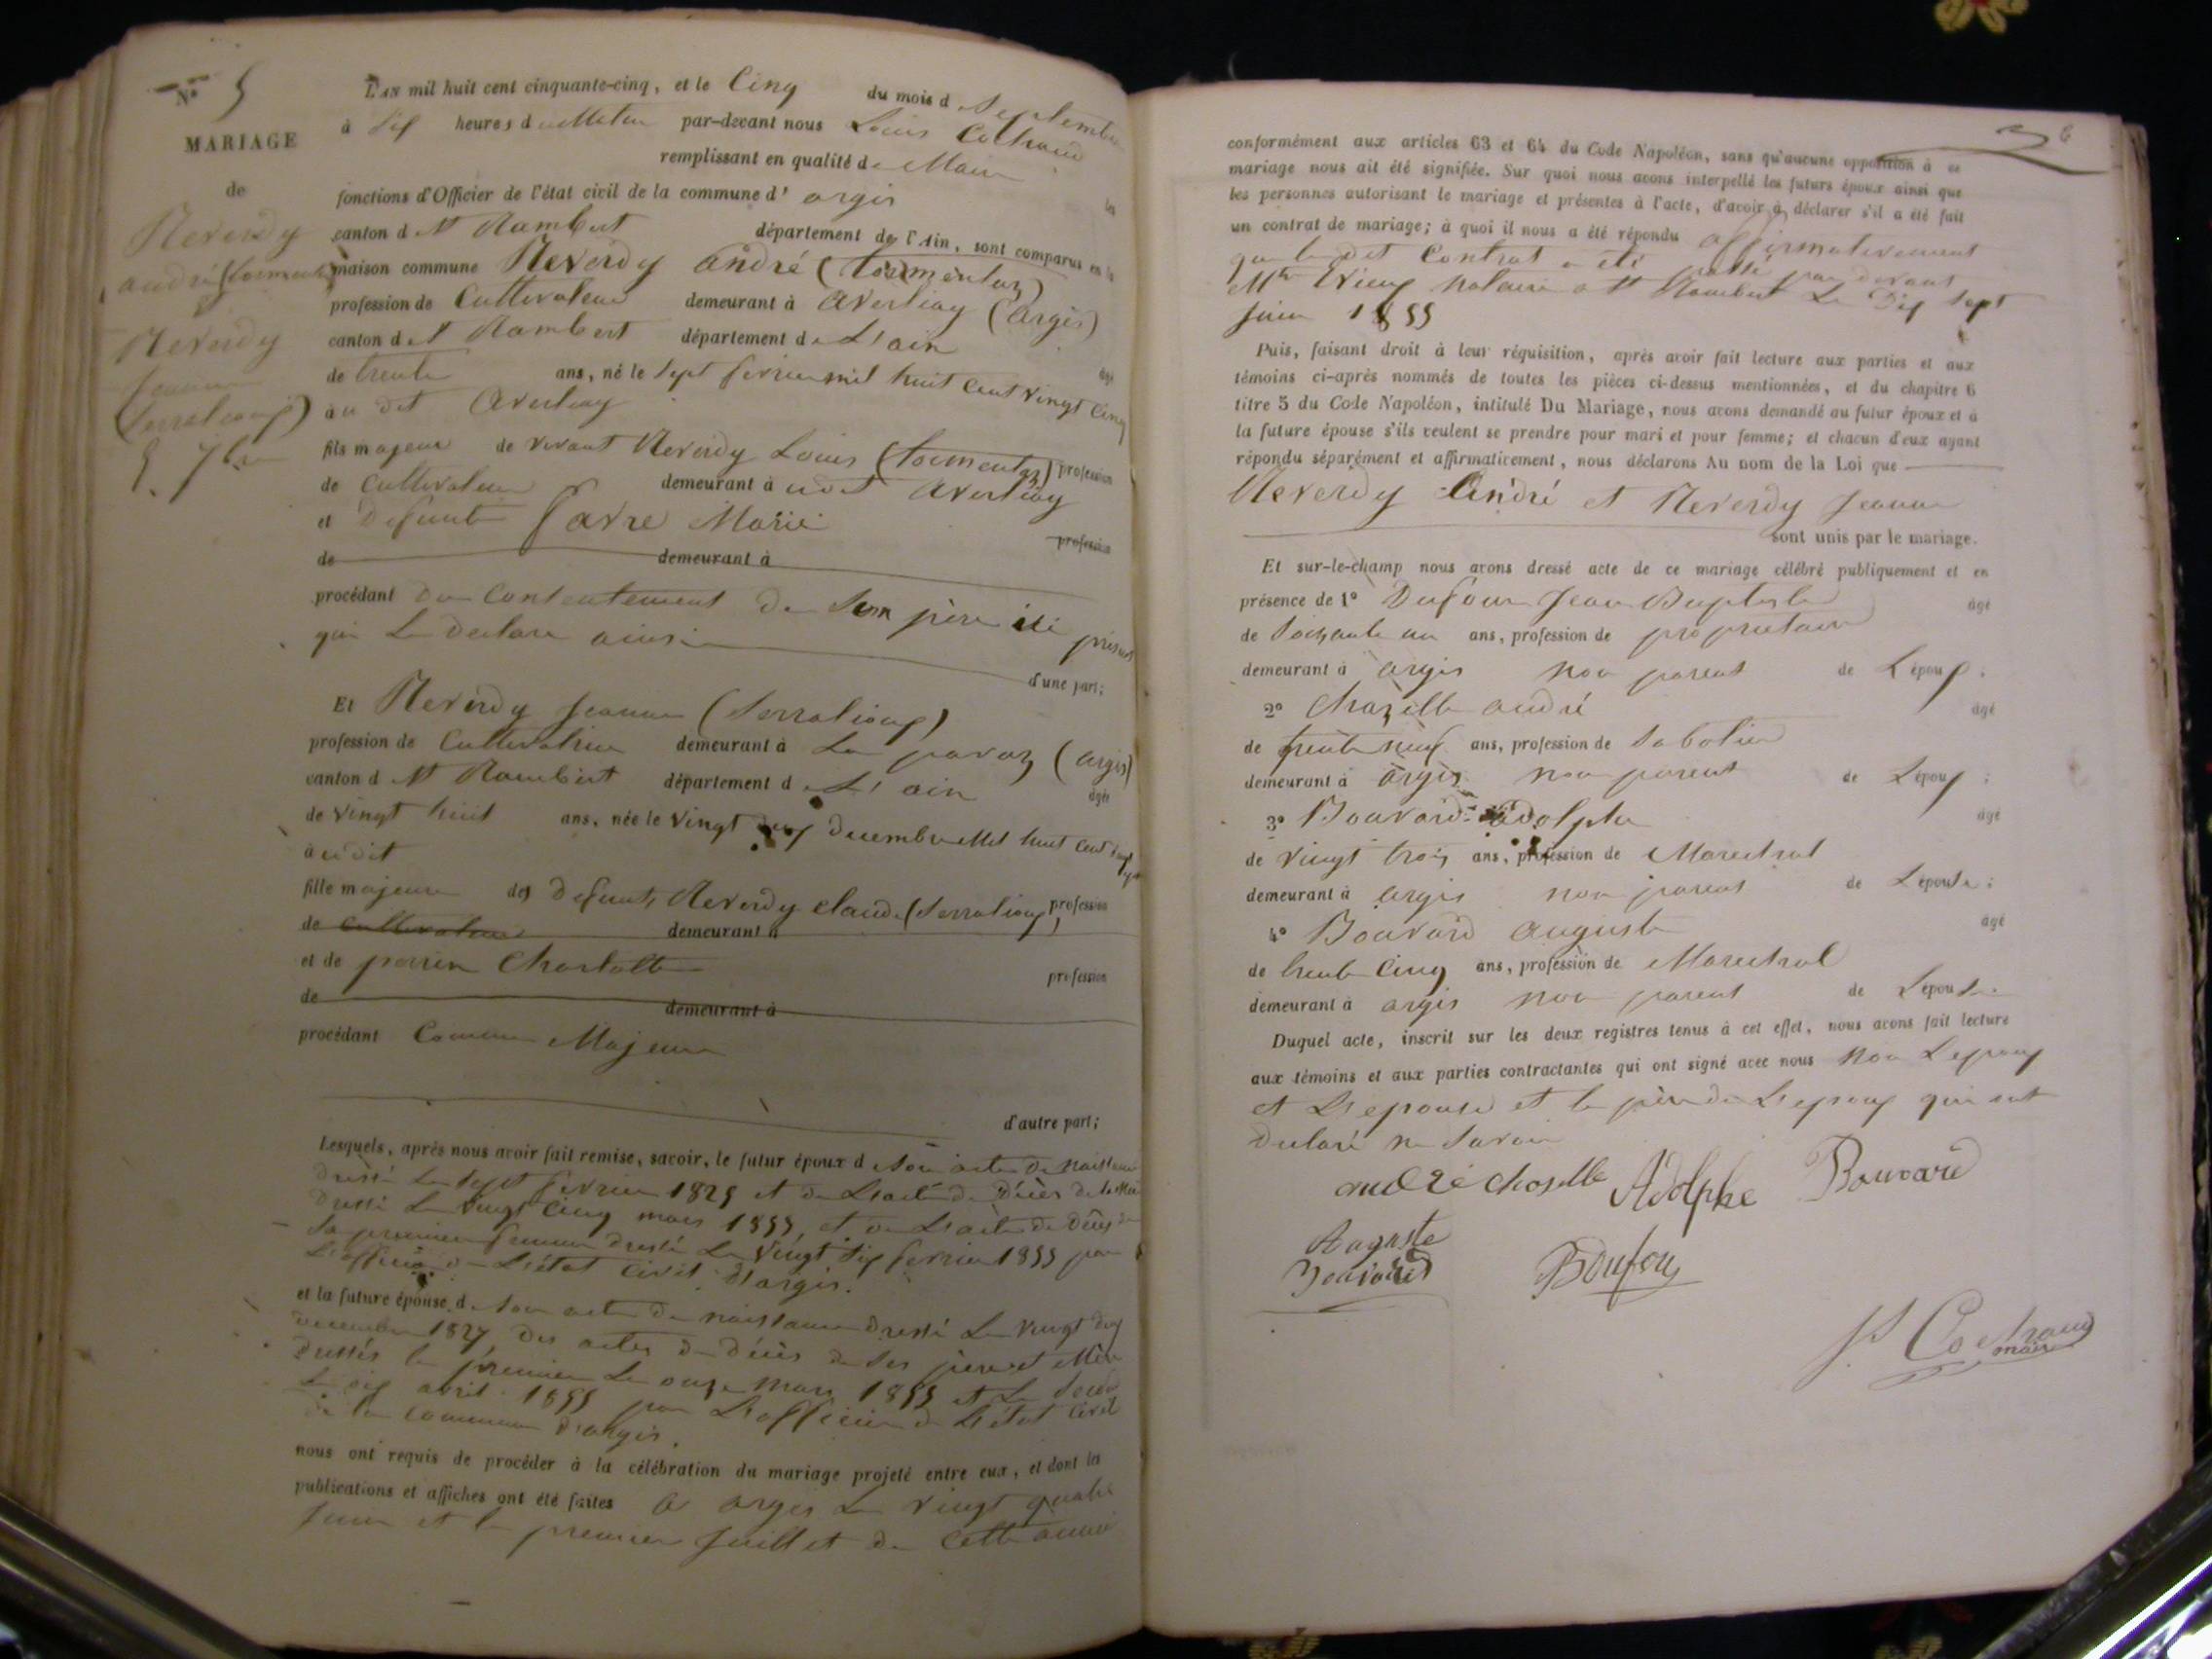 N° 5
MARIAGE
de
Reverdy
andré (tormentaz)
&
Reverdy
jeanne
(Serralioux)
5 7bre
L'AN mil huit cent cinquante-cinq, et le Cinq du mois d Septembre
à Six heures du Matin par-devant nous Louis Cothaud
remplissant en qualité de Maire les
fonctions d'Officier de l'état civil de la commune d' argis
canton d St Rambert département de l'Ain, sont comparus en la
maison commune Reverdy andré (tormentaz)
profession de Cultivateur demeurant à Averliay (Argis)
canton de St Rambert département de L'ain âgé
de trente ans, né le Sept fevrier mil huit Cent vingt Cinq
au dit Averliay
fils majeur de vivant Reverdy Louis (tormentaz) profession
de Cultivateur demeurant à udit Averliay
et Defunte favre Marie profession
de demeurant à
procédant du Consentement de Son père ici présent
qui Le declare ainsi
d'une part;
Et Reverdy Jeanne (Serralioux)
profession de Cultivatrice demeurant à La pavaz (argis)
canton d St Rambert département de L'ain âgée
de vingt huit ans, née le vingt deux Decembre Mil huit Cent vingt
audit
fille majeure des Defunts Reverdy claude (Serralioux) profession
de Cultivateur demeurant à
et de perrin Charlotte profession
de demeurant à
procédant Comme Majeure
d'autre part;
Lesquels, après nous avoir fait remise, savoir, le futur époux de Son acte de naissance
dressé Le Sept fevrier 1825 et de L'acte de Décès de sa Mère
dressé Le vingt cinq mars 1855, et de L'acte de Décès de
Sa premiere femme dressé Le vingt Six fevrier 1855 par
L'officier de L'état civil d'argis.
et la future épouse de Son acte de naissance dressé Le vingt deux
decembre 1827, des actes de décès de Ses père et Mère
Dressés le premier Le onze mars 1855 et Le Second
Le six avril 1855 par L'officier de L'état civil
de la commune d'argis.
nous ont requis de procéder à la célébration du mariage projeté entre eux, et dont les
publications et affiches ont été faites a argis Le vingt quatre
Juin et le premier Juillet de Cette année
6
conformément aux articles 63 et 64 du Code Napoléon, sans qu'aucune opposition à ce
mariage nous ait été signifiée. Sur quoi nous avons interpellé les futurs époux ainsi que
les personnes autorisant le mariage et présentes à l'acte, d'avoir à déclarer s'il a été fait
un contrat de mariage; à quoi il nous a été répondu affirmativement
que le dit Contrat a été passé par devant
Mtre notaire a St Rambert Le Dix Sept
Juin 1855
Puis, faisant droit à leur réquisition, après avoir fait lecture aux parties et aux
témoins ci-après nommés de toutes les pièces ci-dessus mentionnées, et du chapitre 6
titre 5 du Code Napoléon, intitulé Du Mariage, nous avons demandé au futur époux et à
la future épouse s'ils veulent se prendre pour mari et pour femme; et chacun d'eux ayant
répondu séparément et affirmativement, nous déclarons Au nom de la Loi que
Reverdy André et Reverdy Jeanne
sont unis par le mariage.
Et sur-le-champ nous avons dressé acte de ce mariage célébré publiquement et en
présence de 1° Dufour Jean Baptiste âgé
de Soixante un ans, profession de propriétaire
demeurant à argis non parent de L'époux.
2° Chazelle andré âgé
de trente neuf ans, profession de Sabotier
demeurant à argis non parent de L'époux;
3° Bouvard adolphe âgé
de vingt trois ans, profession de Marechal
demeurant à argis non parent de L'épouse;
4° Bouvard auguste âgé
de trente Cinq ans, profession de Marechal
demeurant à argis non parent de L'épouse.
Duquel acte, inscrit sur les deux registres tenus à cet effet, nous avons fait lecture
aux témoins et aux parties contractantes qui ont signé avec nous Non L'epoux
et L'epouse et le père de L'epoux qui ont
declaré ne Savoir
andré choselle Adolphe Bouvard
Auguste
Bouvard
Doufour
maire